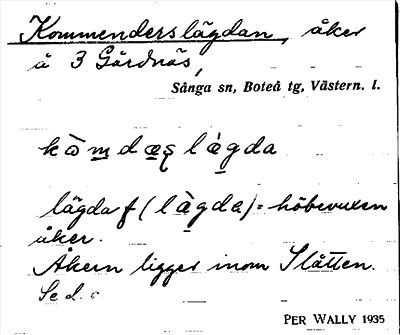 Kommenderslägdan, åker
å 3 Gårdnäs,
Sånga sn, Boteå tg, Västern. l.
kòm̲dæʂ làgda
lägda f (làgda) = höbevuxen
åker.
Åkern ligger inom Slåtten.
Se d. o
PER WALLY 1935